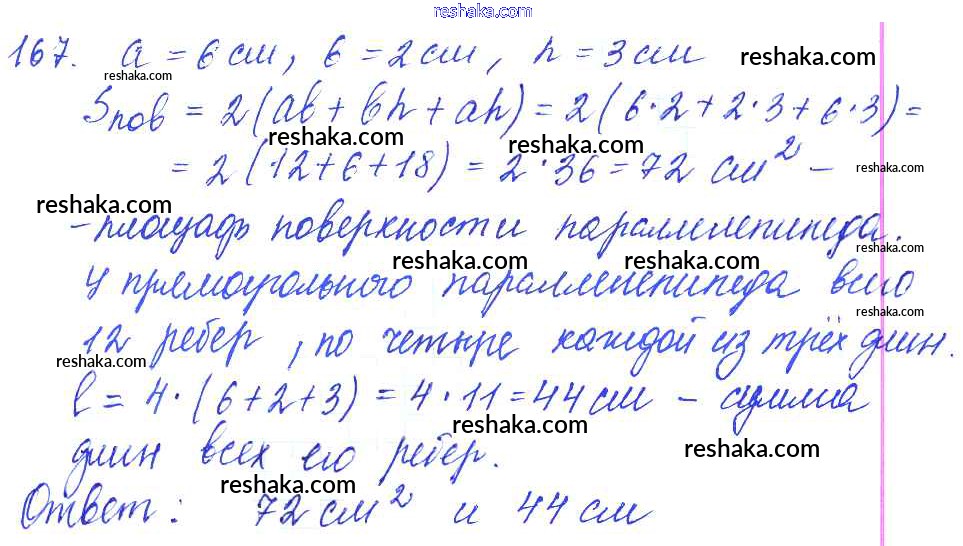 reshaka.com
167. a = 6 см, b = 2 см, h = 3 см reshaka.com
reshaka.com
Sпов = 2(ab + bh + ah) = 2(6·2 + 2·3 + 6·3) =
reshaka.com reshaka.com
reshaka.com
= 2(12+6+18) = 2·36 = 72 см² –
reshaka.com reshaka.com
reshaka.com
– площадь поверхности параллелепипеда.
reshaka.com reshaka.com reshaka.com
У прямоугольного параллелепипеда всего
reshaka.com
12 ребер, по четыре каждой из трёх длин.
reshaka.com
l = 4·(6+2+3) = 4·11 = 44 см – сумма
reshaka.com reshaka.com
длин всех его ребер.
reshaka.com
Ответ: 72 см² и 44 см